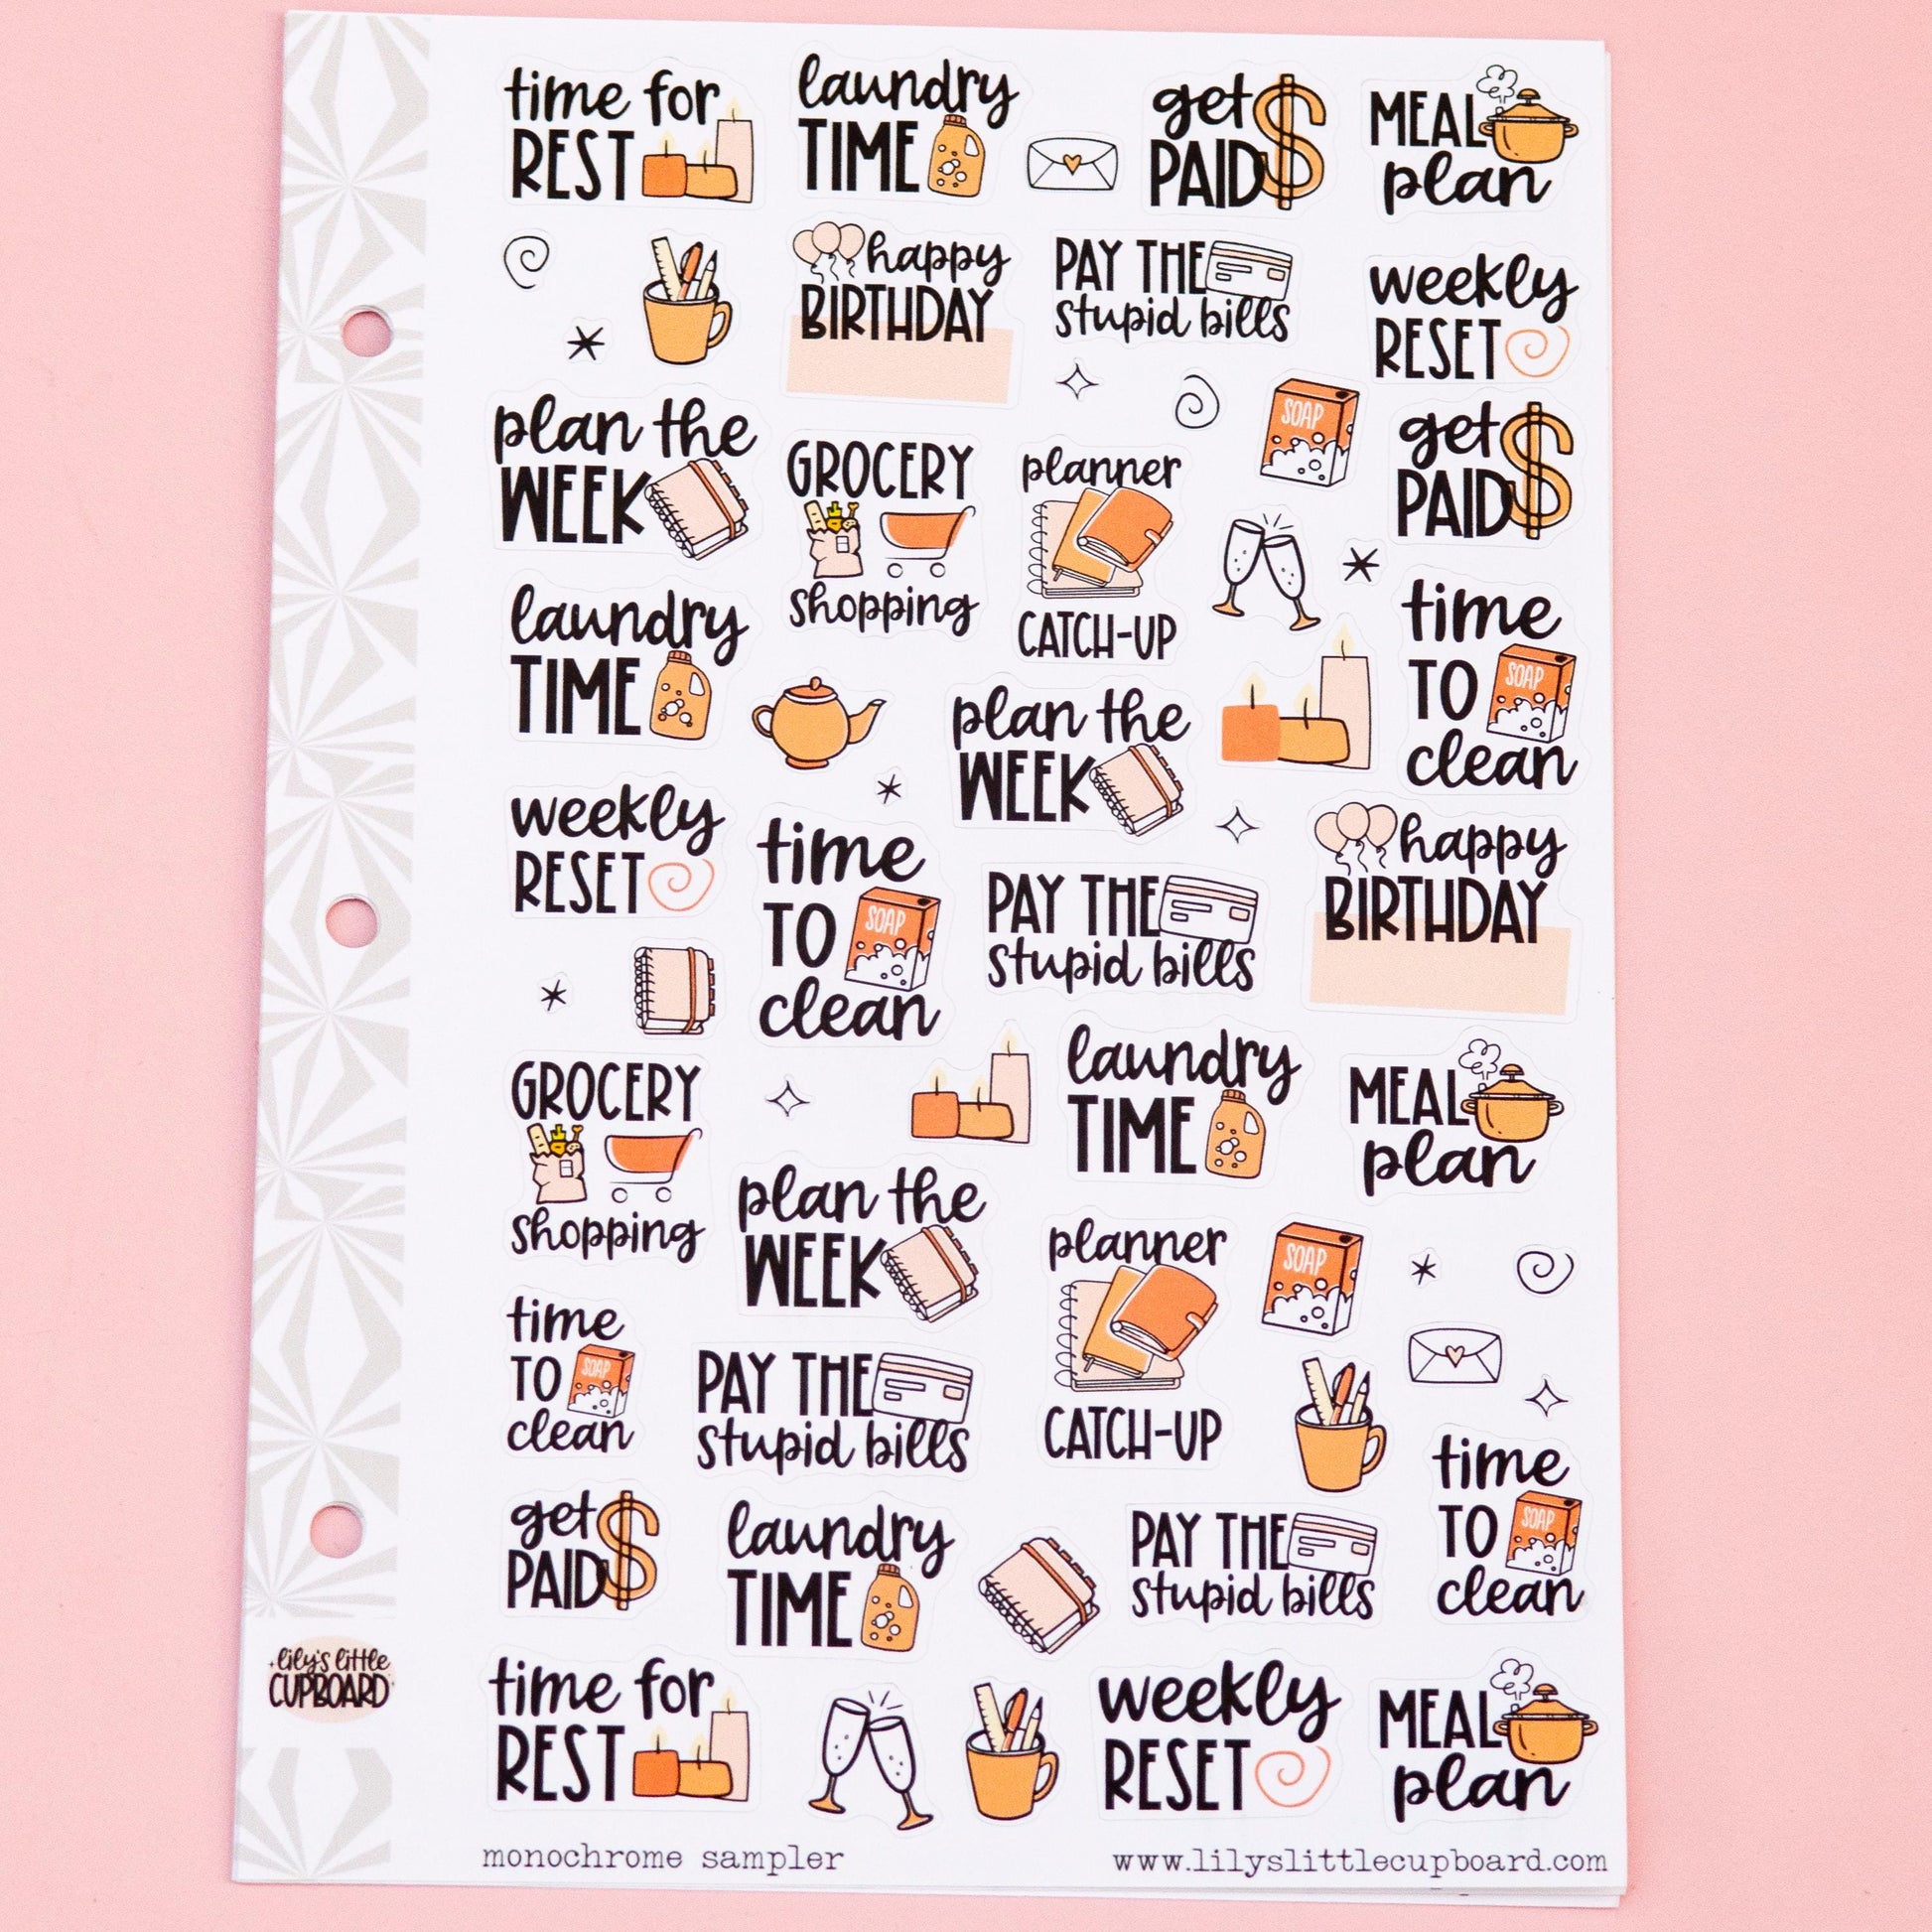 time for
REST
laundry
TIME
get
PAID
MEAL
plan
happy
BIRTHDAY
PAY THE
stupid bills
weekly
RESET
plan the
WEEK
GROCERY
shopping
planner
CATCH-UP
SOAP
get
PAID
laundry
TIME
plan the
WEEK
time
TO
SOAP
clean
weekly
RESET
time
TO
SOAP
clean
PAY THE
stupid bills
happy
BIRTHDAY
GROCERY
shopping
plan the
WEEK
laundry
TIME
MEAL
plan
planner
CATCH-UP
SOAP
time
TO
SOAP
clean
PAY THE
stupid bills
time
TO
SOAP
clean
get
PAID
laundry
TIME
PAY THE
stupid bills
lily's little
CUPBOARD
time for
REST
weekly
RESET
MEAL
plan
monochrome sampler
www.lilyslittlecupboard.com